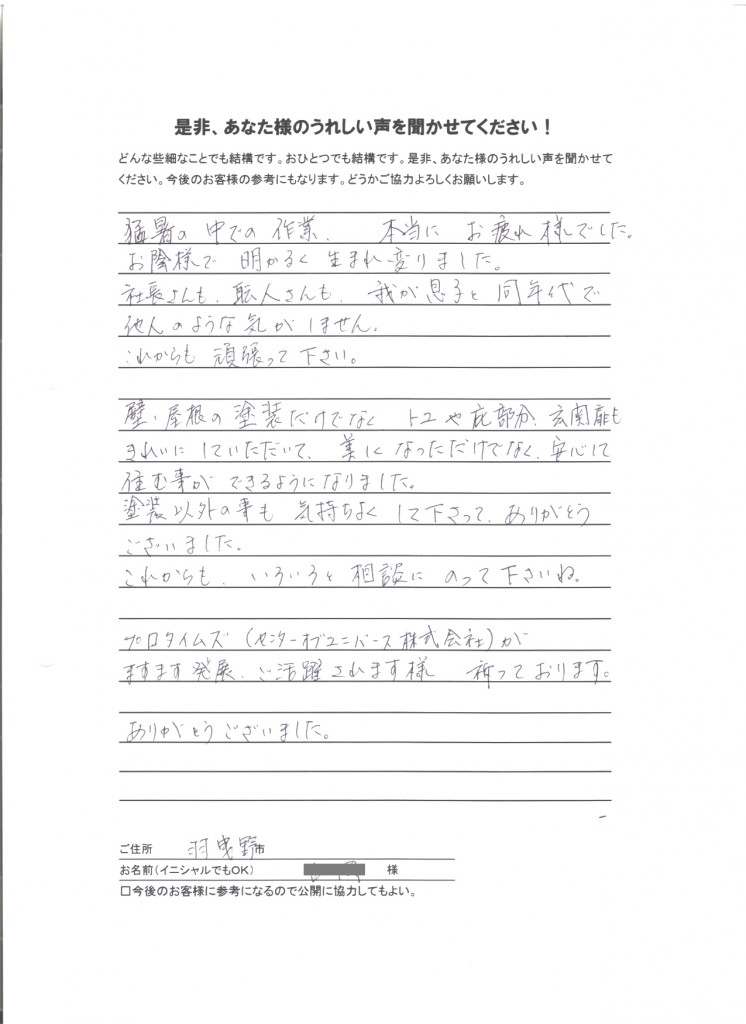 是非、あなた様のうれしい声を聞かせてください！
どんな些細なことでも結構です。おひとつでも結構です。是非、あなた様のうれしい声を聞かせて
ください。今後のお客様の参考にもなります。どうかご協力よろしくお願いします。
猛暑の中での作業、本当にお疲れ様でした。
お陰様で明かるく生まれ変りました。
社長さんも、職人さんも、我が息子と同年代で
他人のような気がしません。
これからも頑張って下さい。
壁・屋根の塗装だけでなくトユや庇部分、玄関扉も
きれいにしていただいて、美しくなっただけでなく、安心して
住む事ができるようになりました。
塗装以外の事も気持ちよくして下さって、ありがとう
ございました。
これからも、いろいろと相談にのって下さいね。
プロタイムズ（センターオブユニバース株式会社）が
ますます発展、ご活躍されます様祈っております。
ありがとうございました。
ご住所 羽曳野市
お名前（イニシャルでもOK） 様
□今後のお客様に参考になるので公開に協力してもよい。